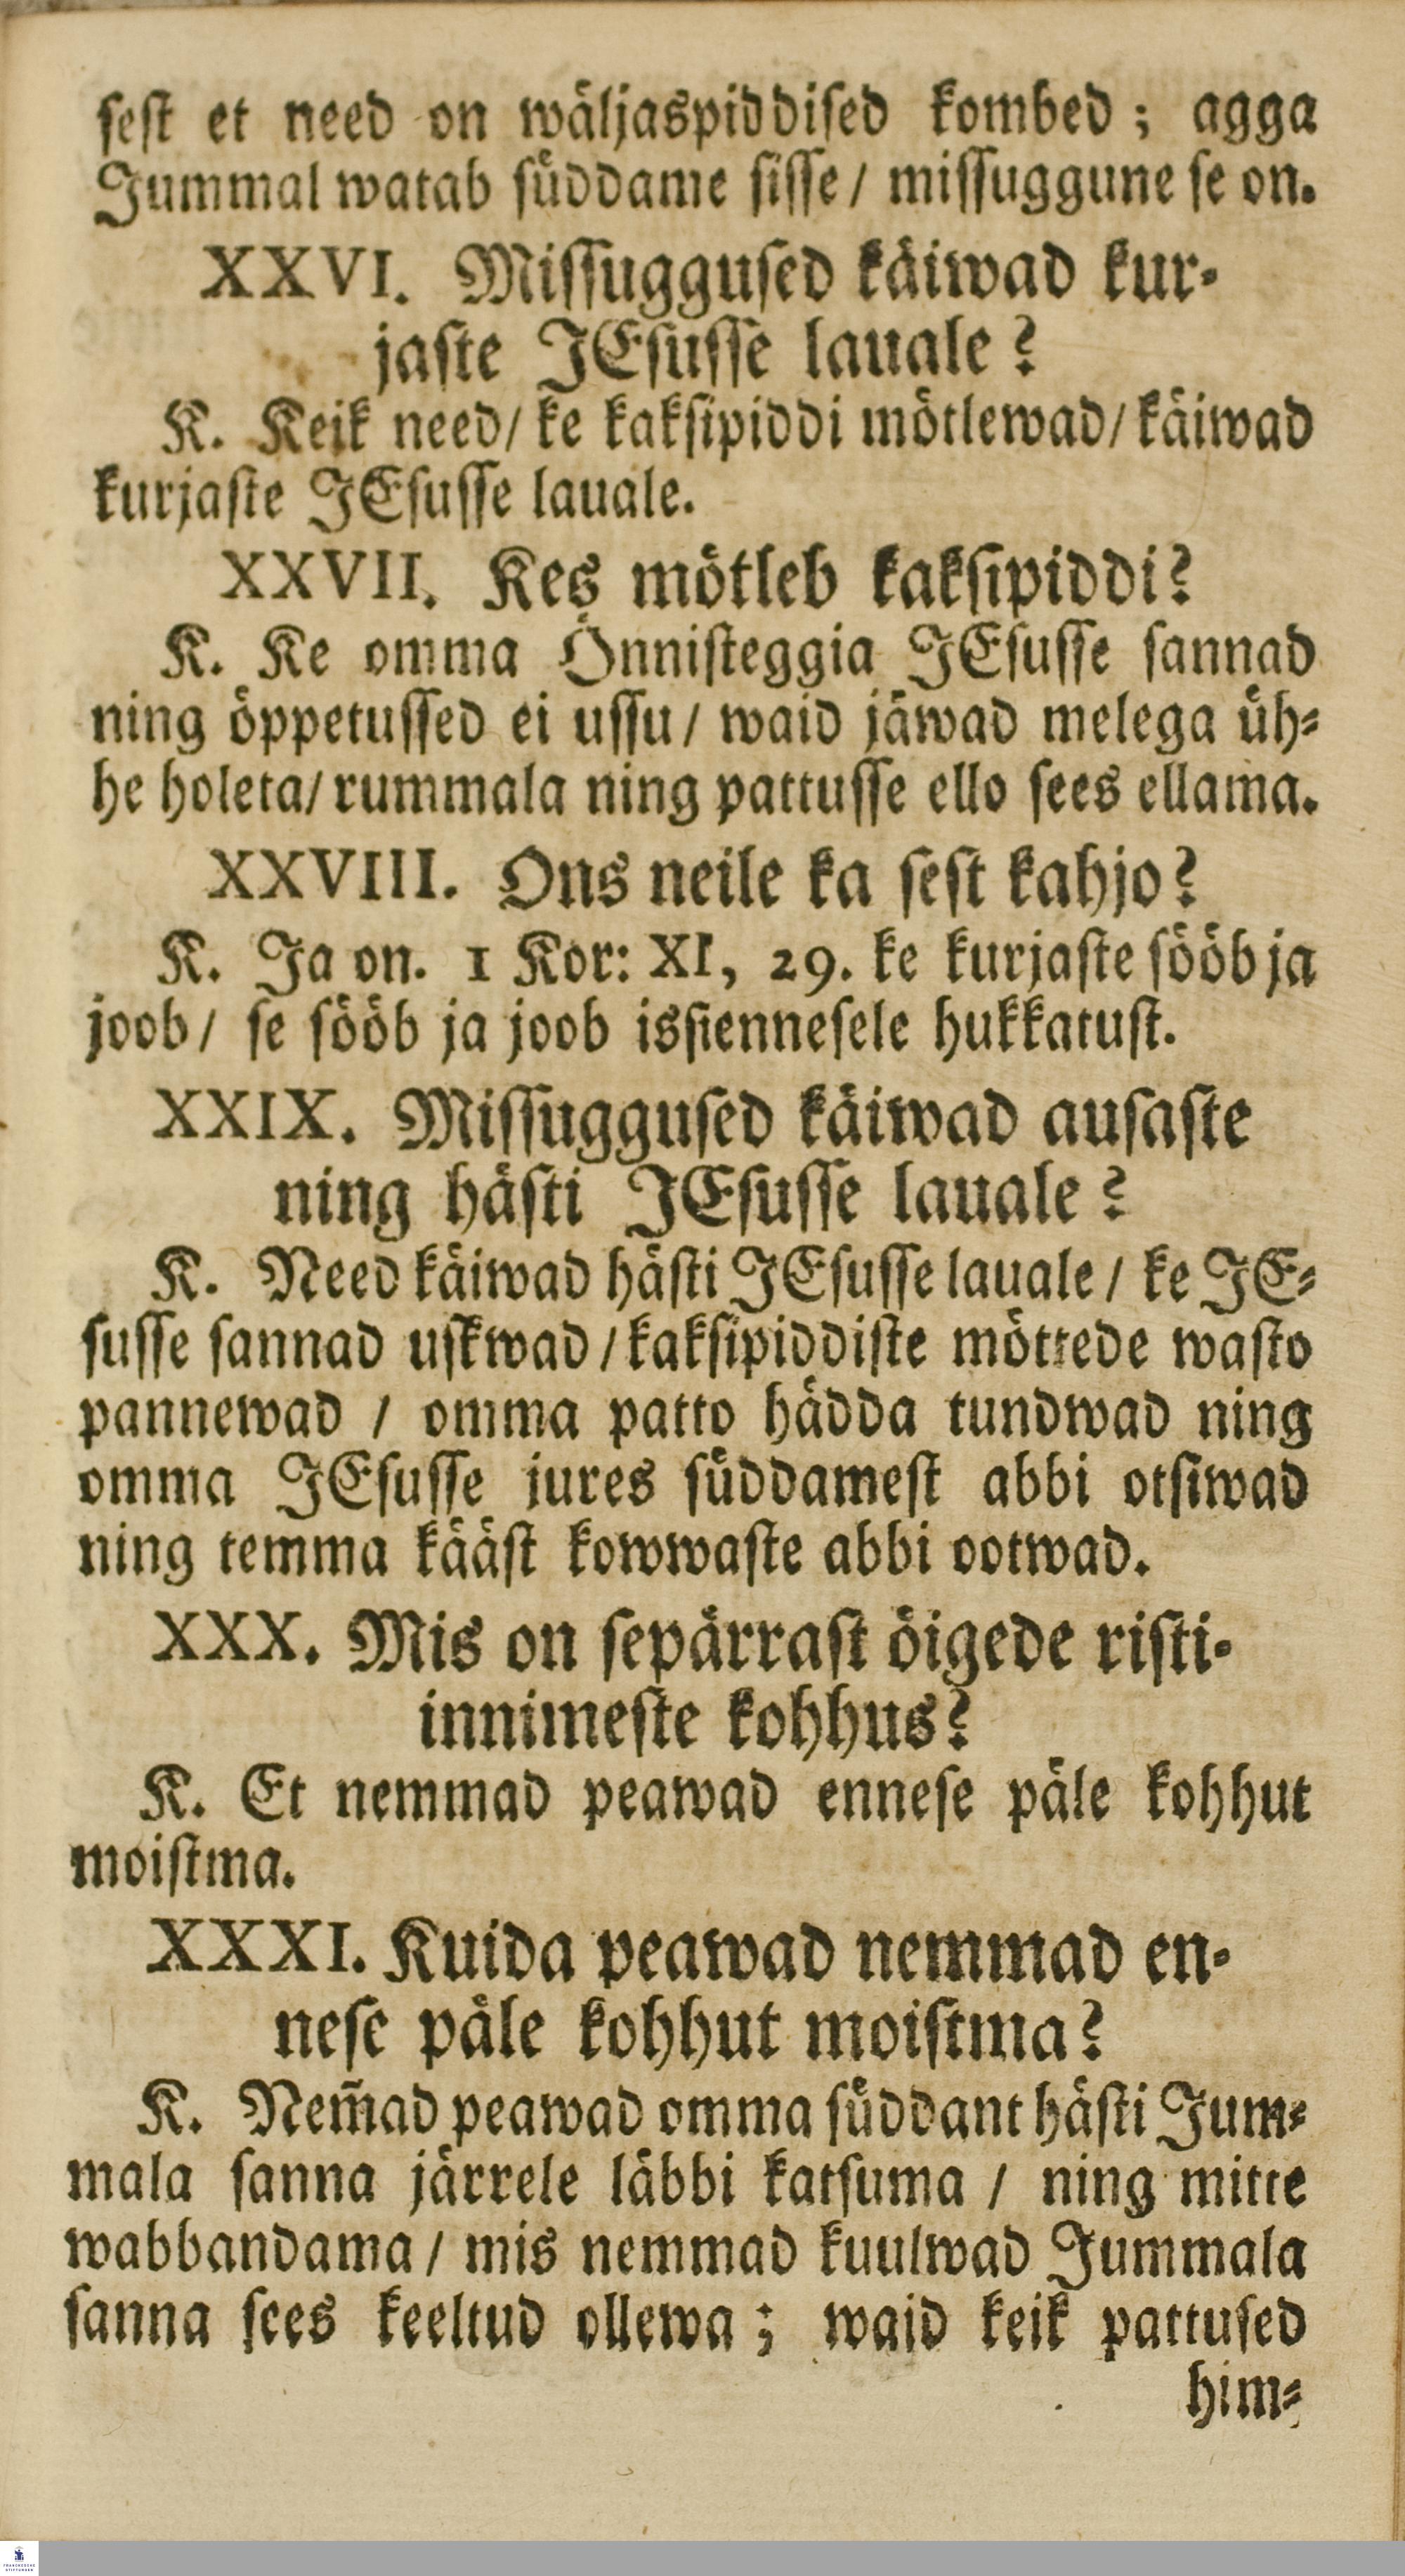 sest et need on wäljaspiddised kombed ; agga
Jummal watab süddame sisse / missuggune se on.
XXVI. Missuggused käiwad kur-
jaste JEsusse lauale ?
K. Keik need / ke kaksipiddi mötlewad / käiwad
kurjaste JEsusse lauale.
XXVII. Kes mötleb kaksipiddi?
K. Ke omma Önnisteggia JEsusse sannad
ning öppetussed ei ussu / waid jäwad melega üh-
he holeta / rummala ning pattusse ello sees ellama.
XXVIII. Ons neile ka sest kahjo?
K. Ja on. 1 Kor: XI, 29. ke kurjaste sööb ja
joob / se sööb ja joob issiennesele hukkatust.
XXIX. Missuggused käiwad ausaste
ning hästi JEsusse lauale ?
K. Need käiwad hästi JEsusse lauale / ke JE-
susse sannad uskwad / kaksipiddiste möttede wasto
pannewad / omma patto hädda tundwad ning
omma JEsusse jures süddamest abbi otsiwad
ning temma kääst kowwaste abbi ootwad.
XXX. Mis on sepärrast öigede risti-
innimeste kohhus?
K. Et nemmad peawad ennese päle kohhut
moistma.
XXXI. Kuida peawad nemmad en-
nese päle kohhut moistma?
K. Nem̃ad peawad omma süddant hästi Jum-
mala sanna järrele läbbi katsuma / ning mitte
wabbandama / mis nemmad kuulwad Jummala
sanna sees keeltud ollewa ; waid keik pattused
him-
FRANCKESCHE
STIFTUNGEN